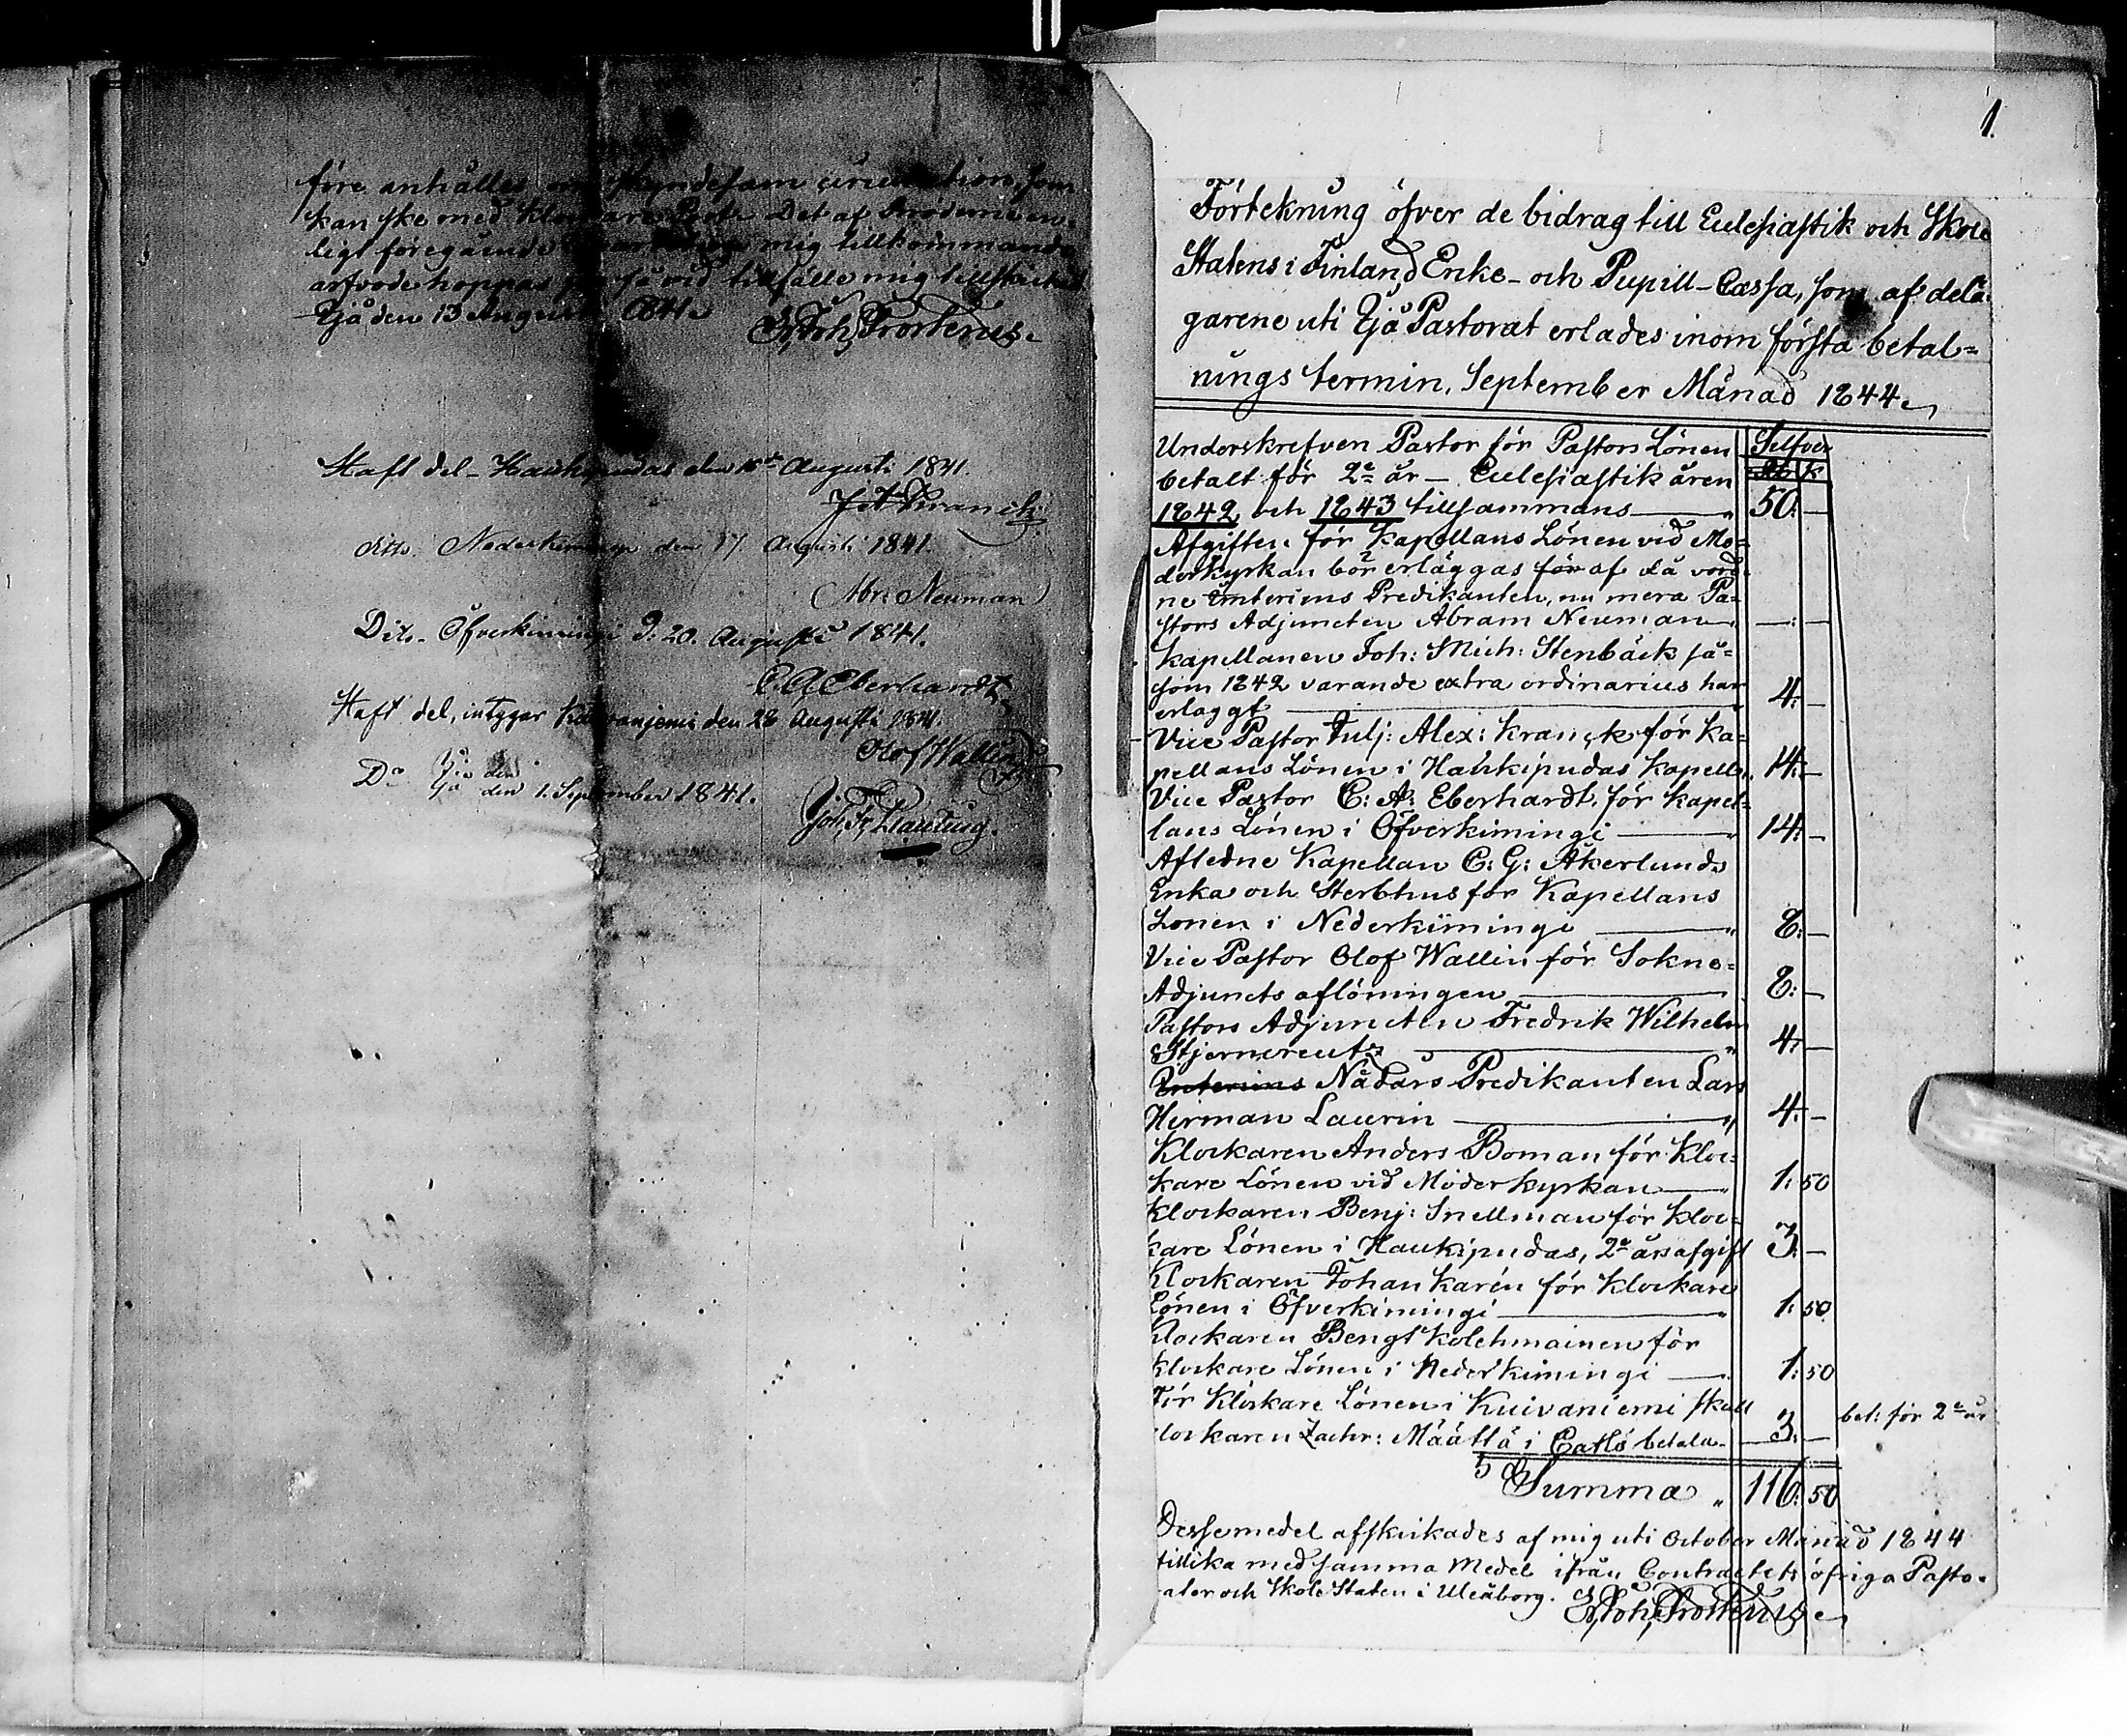 före anhålles om skyndesam circulation, som
kan ske med Klockare Post. Det af Bröderne en-
ligt föregående mig tillkommande
arfvode hoppas jag få vid tillfälle mig tillstäldt
Ijå den 13 August 1841.
Joh, Frosterus.
Haft del - Haukipudas den Augusti 1841.
Kranck
ditto Nederkiminge den 17 Augusti 1841.
Abr: Neuman
Dito - Öfverkimingi d: 20. Augusti 1841.
C. A. Eberhardt
Haft del, intygar Kuivaniemi den 28 Augusti 1841.
Olof Wallin
Do Ijå den
Ijå den 1. September 1841.
Joh, Fr,
1.
Förtekning öfver de bidrag till Ecclesiastik och Skole
Statens i Finland Enke- och Pupill-Cassa, som af delä-
garene uti Ijå Pastorat erlades inom första betal=
nings termin, September Månad 1844.
Underskrefven Pastor för Pastors Lönen Silfver
betalt för 2ne år - Ecclesiastik åren Rb K
1842, och 1843 tillsammans 50. —
Afgiften för Kapellans Lönen vid Mo=
derkyrkan bör erläggas för af då vord-
ne Interims Predikanten, nu mera Pa=
stors Adjuncten Abram Neuman —: —
Kapellanen Joh: Mich: Stenbäck så=
som 1842 varande extra ordinarius har
erlaggt 4. —
Vice Pastor Julj: Alex: Kranck för Ka=
pellans Lönen i Haukipudas Kapell 14: —
Vice Pastor C: A: Eberhardt för Kapel=
lans Lönen i Öfverkimingi 14: —
Afledne Kapellan C: G: Åkerlunds
Enka och Sterbhus för Kapellans
Lönen i Nederkimingi 8: —
Vice Pastor Olof Wallin för Sokne=
Adjuncts aflöningen 8: —
Pastors Adjuncten Fredrik Wilhelm
Stjerncreutz 4: —
Interims Nådårs Predikanten Lars
Herman Laurin 4: —
Klockaren Anders Boman för Kloc=
kare Lönen vid Moderkyrkan 1: 50
Klockaren Benj: Snellman för Kloc=
kare Lönen i Haukipudas, 2ne års afgift 3. —
Klockaren Johan Karén för Klockare
Lönen i Öfverkimingi 1: 50
Klockaren Bengt Kolehmainen för
Klockare Lönen i Nederkimingi 1: 50
För Klockare Lönen i Kuivaniemi skall
klockaren Zachr: Määttä i Carlö betala 3: — bet: för 2ne år
Summa 116: 50
Desse medel afskickades af mig uti October Månad 1844
tillika med samma Medel ifrån Contractets öfriga Pasto-
rater och Skole Staten i Uleåborg.
Joh, Frosterus